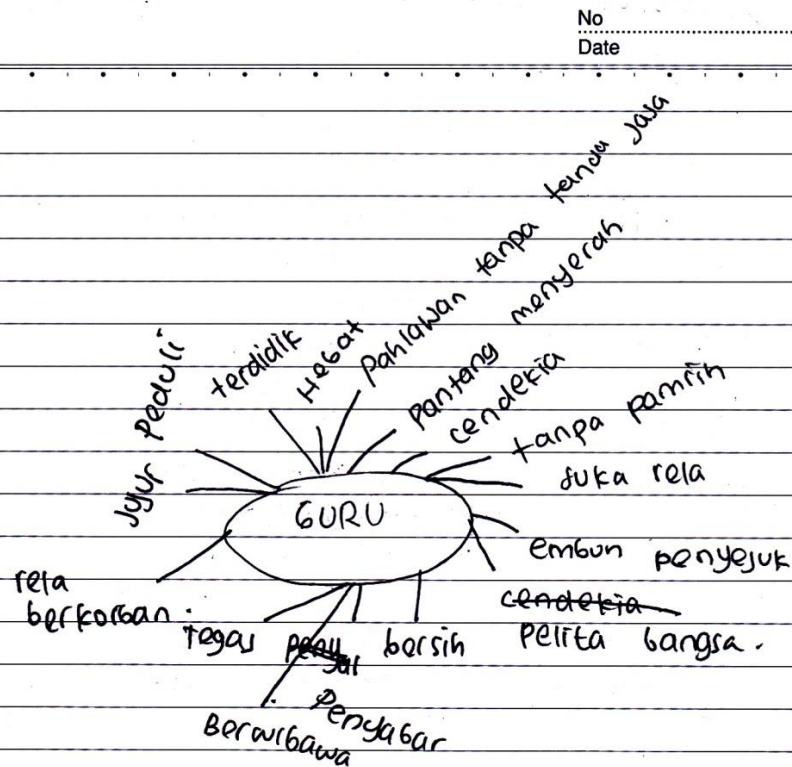 No
Date
Jujur
Peduli
terdidik
Hebat
Pahlawan tanpa tanda jasa
Pantang menyerah
cendekia
tanpa pamrih
suka rela
GURU
embun penyejuk
cendekia
pelita bangsa.
rela
berkorban.
Tegas
bersih
Penyabar
Berwibawa